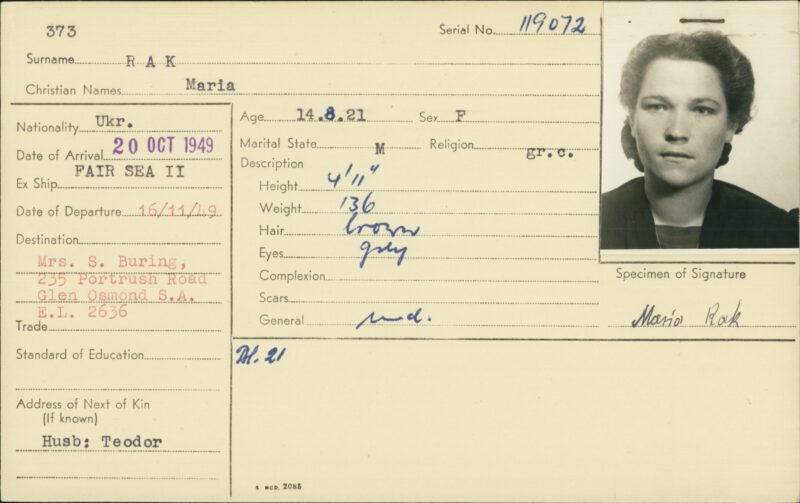 373
Serial No. 119072
Surname RAK
Christian Names Maria
Nationality Ukr.
Date of Arrival 20 OCT 1949
Ex Ship FAIR SEA II
Date of Departure 16/11/49
Destination
Mrs. S. Buring,
235 Portrush Road
Glen Osmond S.A.
E.L. 2636
Trade
Standard of Education
Address of Next of Kin
(If known)
Husb: Teodor
Age 14.8.21 Sex F
Marital State M Religion gr.c.
Description
Height 4'11"
Weight 136
Hair brown
Eyes grey
Complexion
Scars
General med.
Specimen of Signature
Maria Rak
Bl. 21
2085